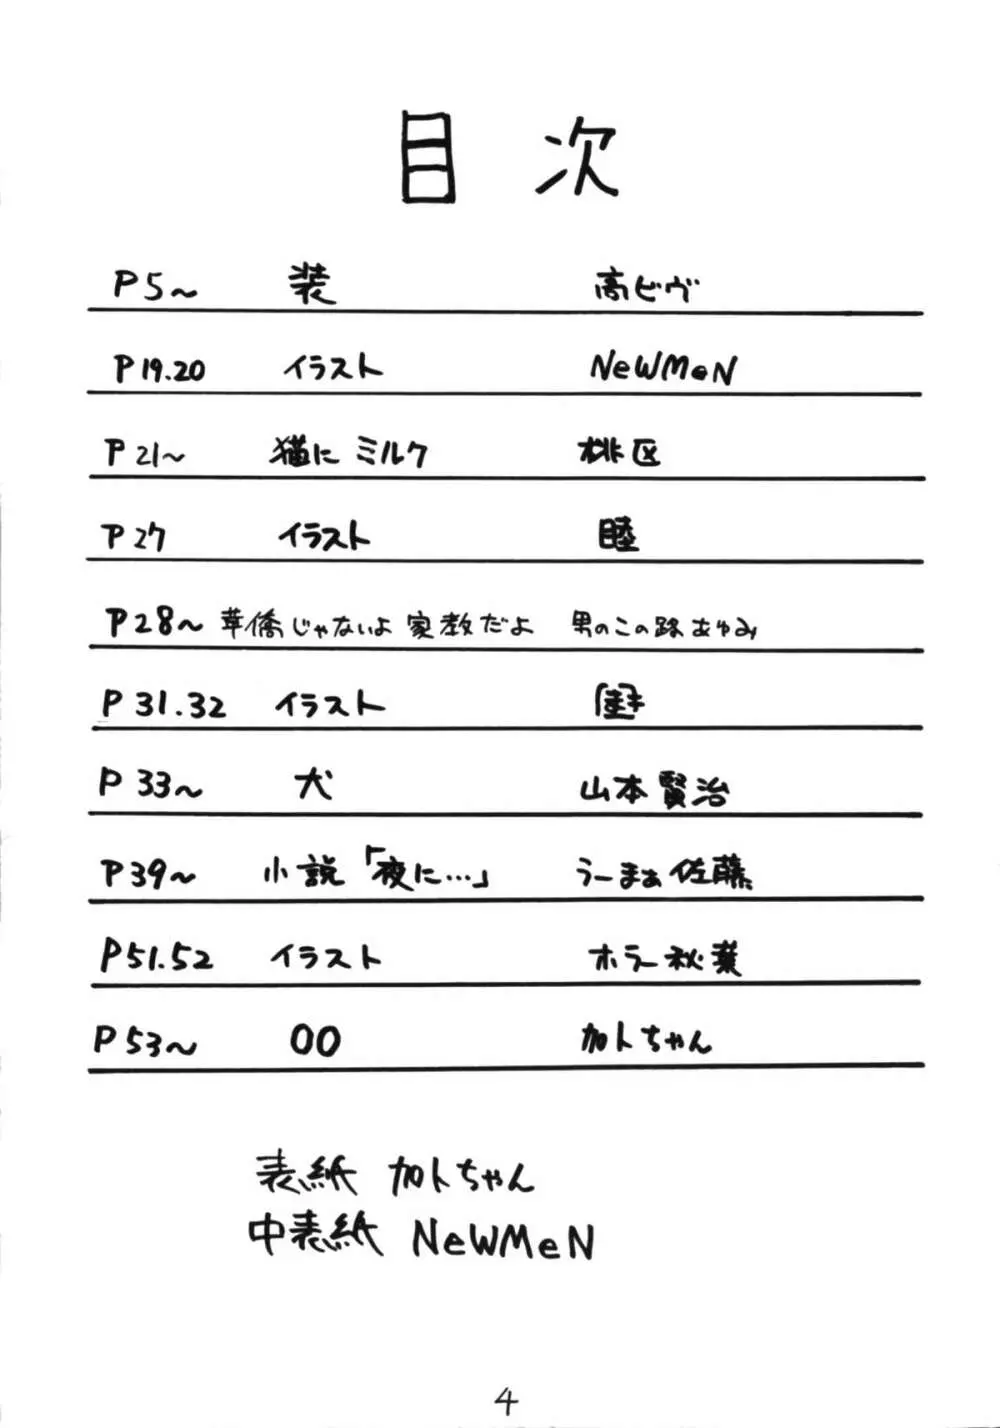 目次
P5～ 装 高ビヴ
P19.20 イラスト NeWMeN
P21～ 猫にミルク 桃区
P27 イラスト 睦
P28～ 華僑じゃないよ 家教だよ 男のこの路あゆみ
P31.32 イラスト
P33～ 犬 山本賢治
P39～ 小説「夜に…」 うーまぁ佐藤
P51.52 イラスト ホラー秋葉
P53～ OO 加トちゃん
表紙 加トちゃん
中表紙 NeWMeN
4